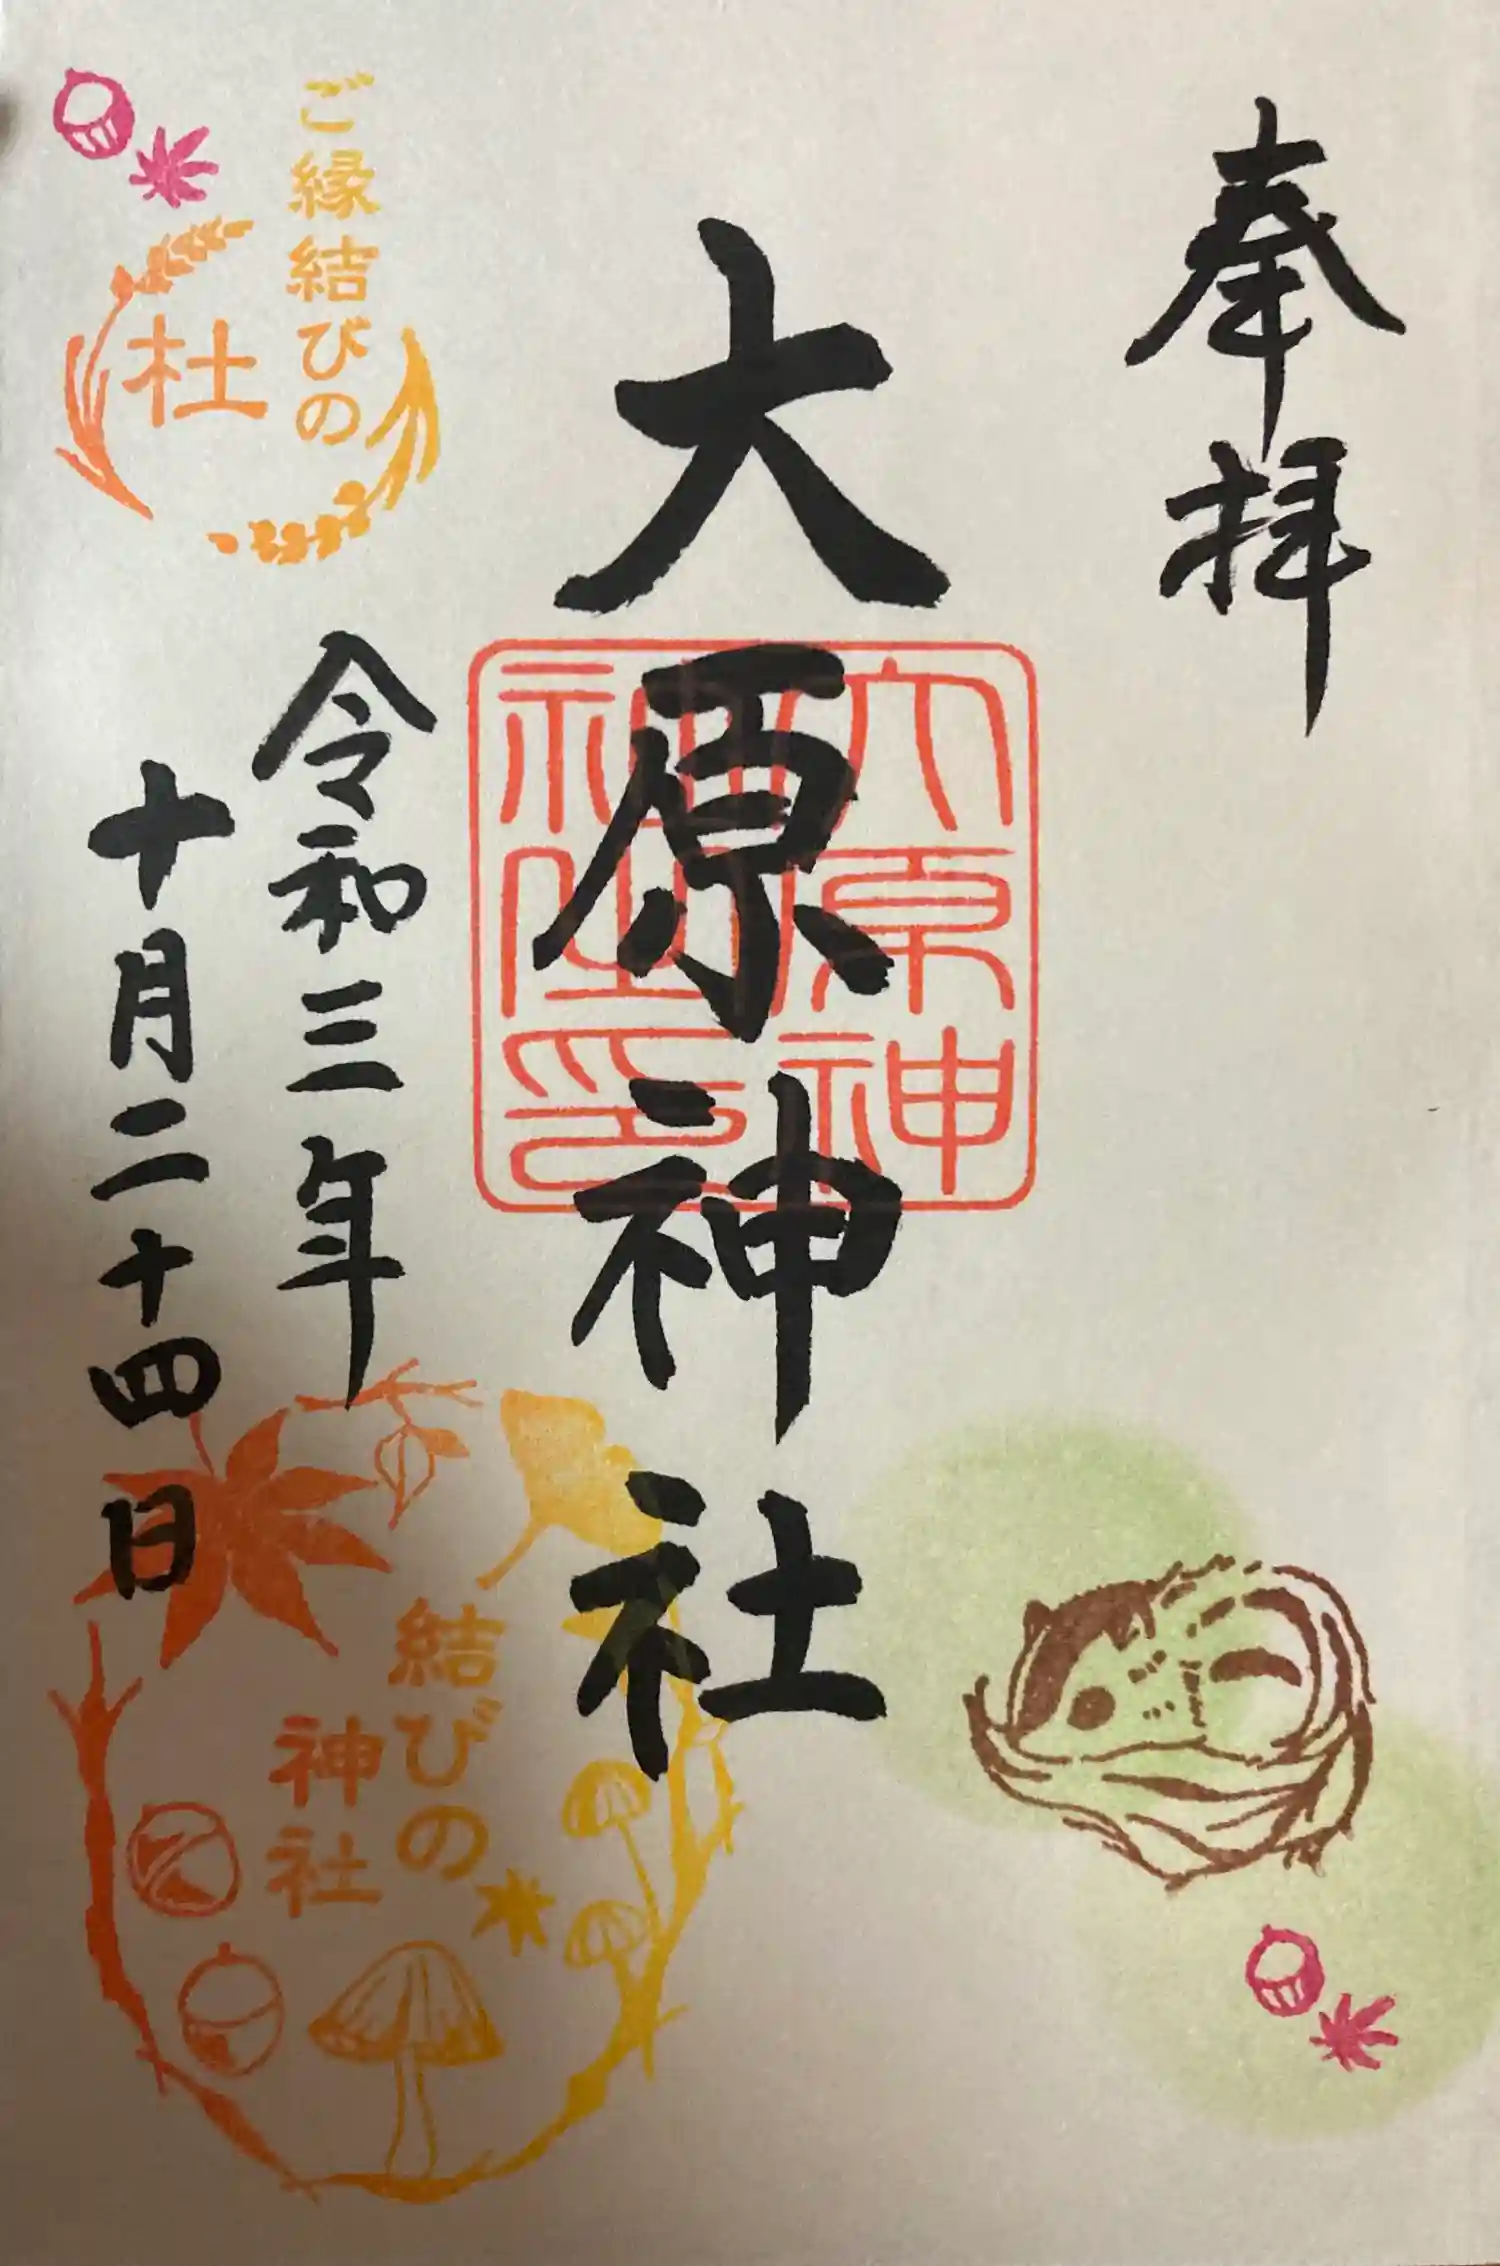 奉拝
大原神社
大原神
神社印
令和三年
十月二十四日
ご縁結びの
杜
結びの
神社